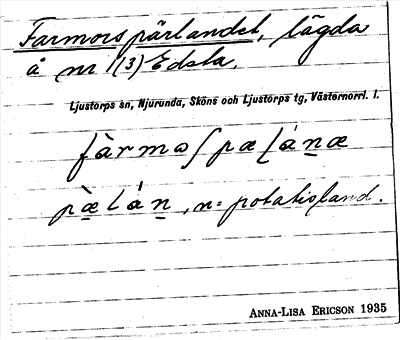 Farmorspärlandet, lägda
å nr 1(3) Edsta.
Ljustorps sn, Njurunda, Sköns och Ljustorps tg, Västernorrl. l.
fàrmoʃpæɭánæ
pæ̀lán, n = potatisland.
ANNA-LISA ERICSON 1935